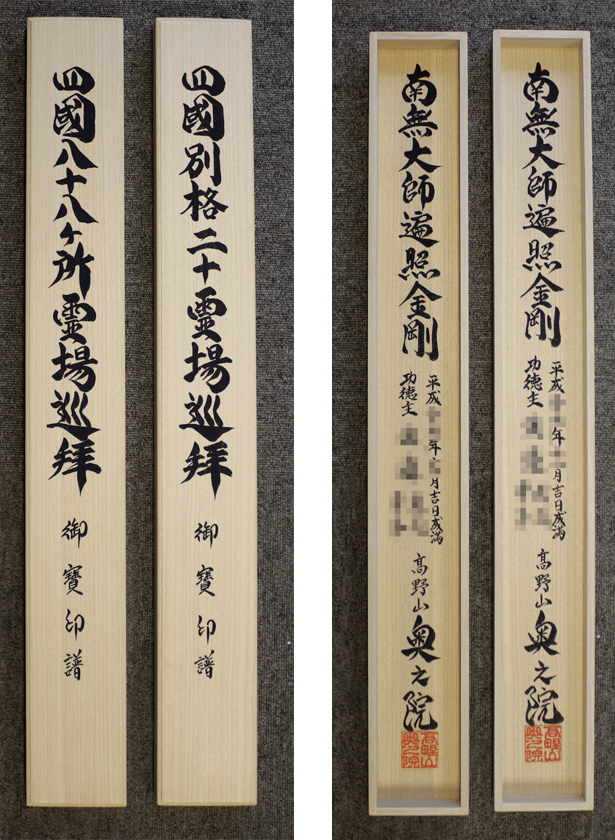 四國八十八ヶ所霊場巡拜
御寶印譜
四國別格二十霊場巡拜
御寶印譜
南無大師遍照金剛
平成 年 月吉日成満
功徳主
高野山奥之院
南無大師遍照金剛
平成 年 月吉日成満
功徳主
高野山奥之院